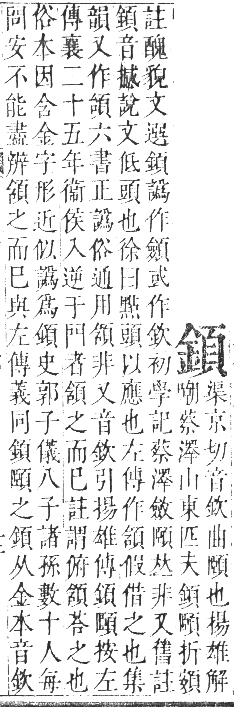 顉
渠京切音欽曲頤也揚雄解
嘲蔡澤山東匹夫顉頤折頞
註醜貌文選顉譌作顩或作欽初學記蔡澤斂頤𠀤非又舊註
顉音撼說文低頭也徐曰點頭以應也左傳作頷假借之也集
韻又作頷六書正譌俗通用頷非又音欽引揚雄傳顉頤按左
傳襄二十五年衞侯入逆于門者頷之而巳註謂俯頷荅之也
俗本因含金字形近似譌爲顉史郭子儀八子諸孫數十人每
問安不能盡辨頷之而巳與左傳義同顉頤之顉从金本音欽